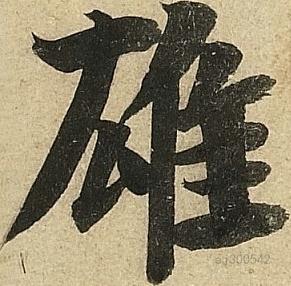 雄
sg300542